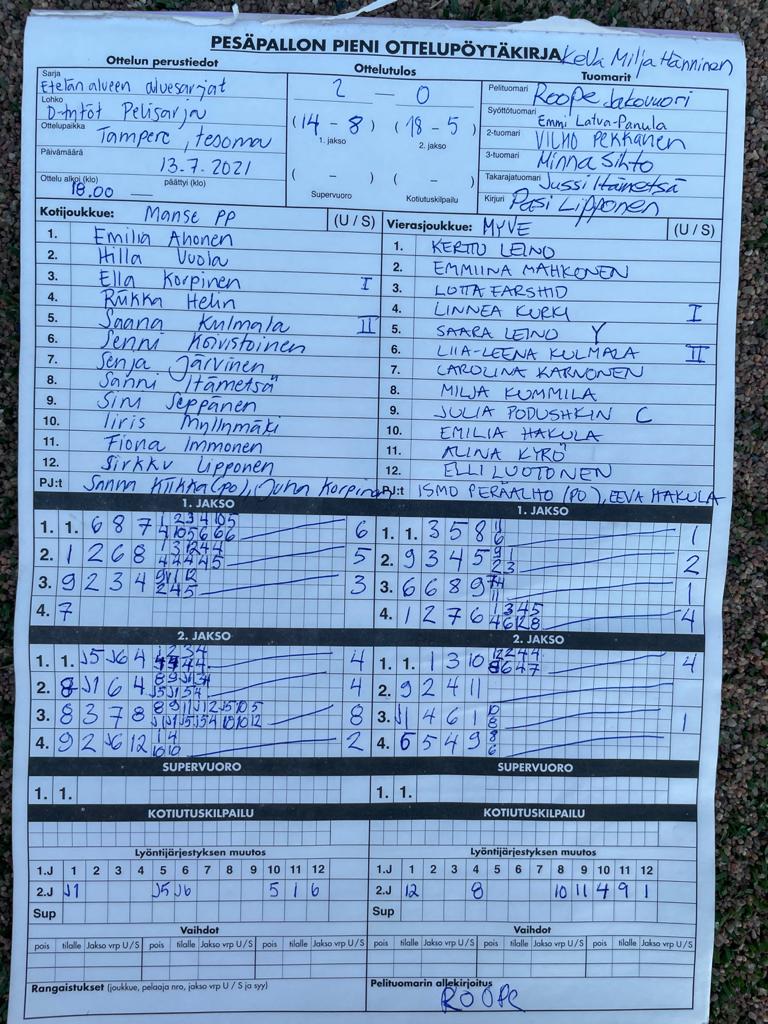 PESÄPALLON PIENI OTTELUPÖYTÄKIRJA Kello Milja Hänninen
Ottelun perustiedot
Ottelutulos
Tuomarit
Sarja
Etelän alueen aluesarjat
Lohko
D-tytöt Pelisarja
Ottelupaikka
Tampere, tesoma
Päivämäärä
13.7.2021
Ottelu alkoi (klo)
18.00
päättyi (klo)
2 - 0
(14 - 8) (18 - 5)
1. jakso 2. jakso
( - ) ( - )
Supervuoro Kotiutuskilpailu
Pelituomari Roope Jakovuori
Syöttötuomari Emmi Latva-Panula
2-tuomari VILHO PEKKANEN
3-tuomari Minna Sihto
Takarajatuomari Jussi Itämetsä
Kirjuri Pasi Lipponen
Kotijoukkue: Manse PP (U / S)
1. Emilia Ahonen
2. Hilla Vuola
3. Ella Korpinen I
4. Riikka Helin
5. Saana Kulmala II
6. Senni Koivistoinen
7. Senja Järvinen
8. Sanni Itämetsä
9. Sini Seppänen
10. Iiris Myllymäki
11. Fiona Immonen
12. Sirkku Lipponen
PJ:t Sanna Kiikka (PO), Juha Korpinen
Vierasjoukkue: MYVE (U / S)
1. KERTTU LEINO
2. EMMIINA MAHKONEN
3. LOTTA FARSHID
4. LINNEA KURKI I
5. SAARA LEINO Y
6. LIIA-LEENA KULMALA II
7. CAROLINA KARNONEN
8. MILJA KUMMILA
9. JULIA PODUSHKIN C
10. EMILIA HAKULA
11. ALINA KYRÖ
12. ELLI LUOTONEN
PJ:t ISMO PERÄALHO (PO), EEVA HAKULA
1. JAKSO
1. 1. 6 8 7 6
2. 1 2 6 8 5
3. 9 2 3 4 3
4. 7
1. JAKSO
1. 1. 3 5 8 1
2. 9 3 4 5 2
3. 6 6 8 9 1
4. 1 2 7 6 4
2. JAKSO
1. 1. J5 J6 4 4
2. 8 J1 6 4 4
3. 8 3 7 8 8
4. 9 2 J6 12 2
2. JAKSO
1. 1. 1 3 10 4
2. 9 2 4 11
3. J1 4 6 1 1
4. 5 4 9
SUPERVUORO
1. 1.
SUPERVUORO
1. 1.
KOTIUTUSKILPAILU
KOTIUTUSKILPAILU
Lyöntijärjestyksen muutos
1.J 1 2 3 4 5 6 7 8 9 10 11 12
2.J J1 J5 J6 5 1 6
Sup
Lyöntijärjestyksen muutos
1.J 1 2 3 4 5 6 7 8 9 10 11 12
2.J 12 8 10 11 4 9 1
Sup
Vaihdot
pois tilalle Jakso vrp U/S pois tilalle Jakso vrp U/S pois tilalle Jakso vrp U/S
Vaihdot
pois tilalle Jakso vrp U/S pois tilalle Jakso vrp U/S pois tilalle Jakso vrp U/S
Rangaistukset (joukkue, pelaaja nro, jakso vrp U / S ja syy)
Pelituomarin allekirjoitus
ROOPE